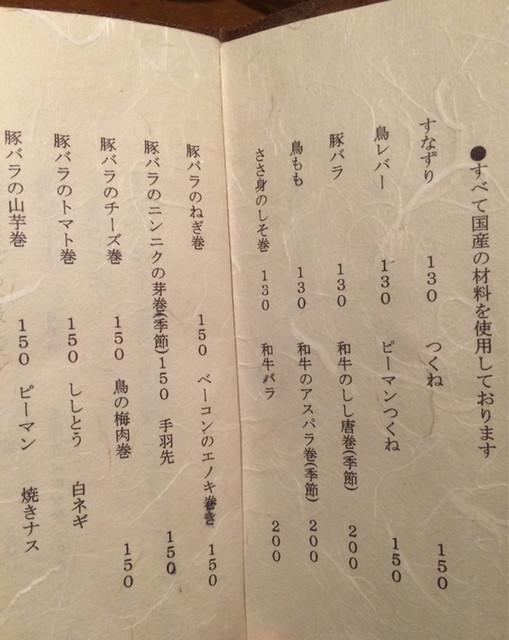 ●すべて国産の材料を使用しております
すなずり 130 つくね 150
鳥レバー 130 ピーマンつくね 150
豚バラ 130 和牛のしし唐巻(季節) 200
鳥もも 130 和牛のアスパラ巻(季節) 200
ささ身のしそ巻 130 和牛バラ 200
豚バラのねぎ巻 150 ベーコンのエノキ巻き 150
豚バラのニンニクの芽巻(季節)150 手羽先 150
豚バラのチーズ巻 150 鳥の梅肉巻 150
豚バラのトマト巻 150 ししとう 白ネギ
豚バラの山芋巻 150 ピーマン 焼きナス